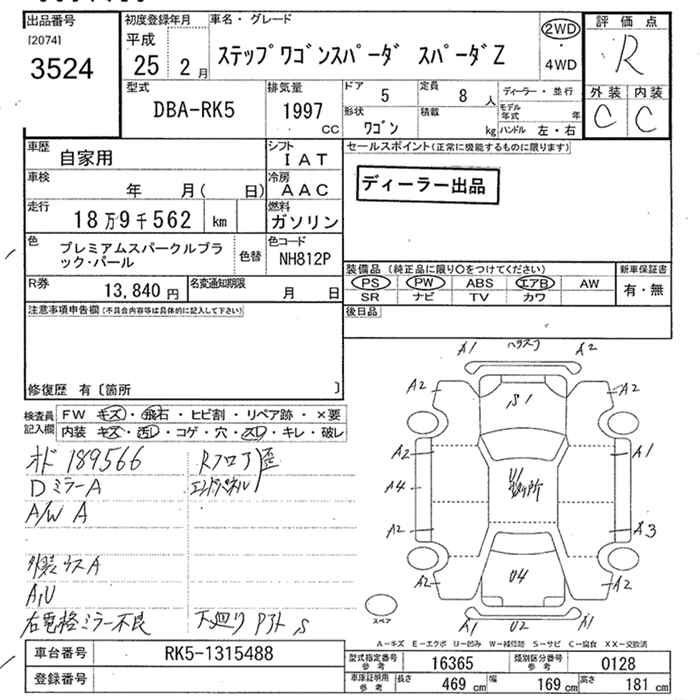 出品番号
[2074]
3524
初度登録年月
平成
25 2月
車名・グレード
ステップワゴンスパーダ スパーダZ
2WD
・
4WD
評価点
R
外装 内装
C C
型式
DBA-RK5
排気量
1997
CC
ドア
5
定員
8 人
ディーラー・並行
モデル年式 年
形状
ワゴン
積載
kg
ハンドル 左・右
車歴
自家用
シフト
IAT
車検
年 月( 日)
冷房
AAC
走行
18万9千562 km
燃料
ガソリン
色
プレミアムスパークルブラック・パール
色替
色コード
NH812P
R券
13,840 円
名変通知期限
月 日
セールスポイント(正常に機能するものに限ります)
ディーラー出品
装備品 (純正品に限り○をつけてください)
PS PW ABS エアB AW
SR ナビ TV カワ
新車保証書
有・無
後日品
注意事項申告欄(不具合内容等は具体的に記入して下さい)
修復歴 有〔箇所 〕
検査員記入欄
FW キズ・飛石・ヒビ割・リペア跡・×要
内装 キズ・汚レ・コゲ・穴・スレ・キレ・破レ
オド 189566
Rフロア 歪
Dミラー A
エンドパネル
A/W A
A,U
右電格ミラー不良
下廻り S
A1 A2
A2 S1 A2
A2 U1 A1
A4
A2 A3
A2 U4 A2
A1 U2 A1
スペア
A-キズ E-エクボ U-凹み W-補修跡 S-サビ C-腐食 XX-交換済
車台番号
RK5-1315488
登録番号
型式指定番号 参考
16365
類別区分番号 参考
0128
車庫証明用 参考
長さ 469 cm
幅 169 cm
高さ 181 cm